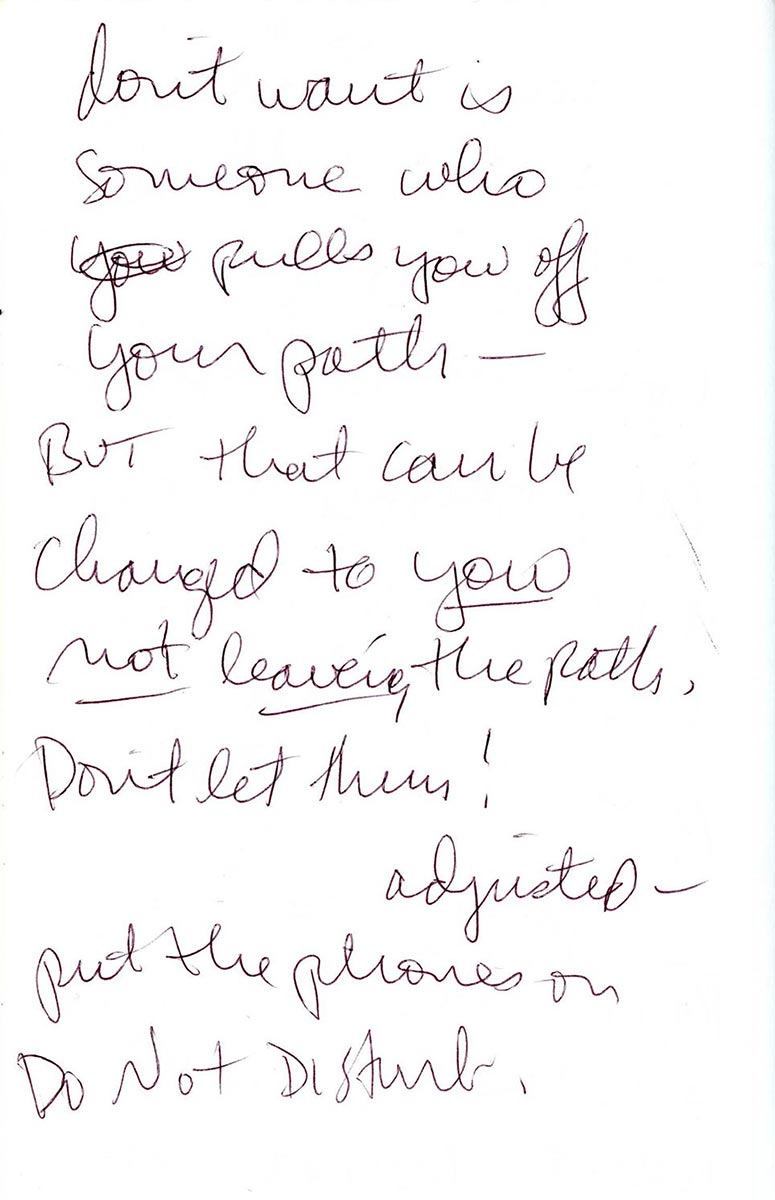 don't want is
someone who
you pulls you off
your path —
BUT that can be
changed to you
not leaveig, the path.
Don't let them!
adjusted —
put the phones on
Do Not Disturb.